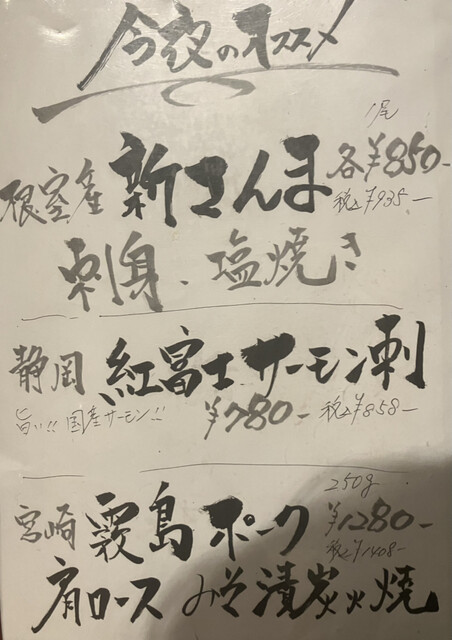 今夜のオススメ
1尾
根室産 新さんま 各¥850-
税込¥935-
刺身・塩焼き
静岡 紅富士サーモン刺
旨い!! 国産サーモン!! ¥780- 税込¥858-
250g
宮崎 霧島ポーク ¥1280-
税込¥1408-
肩ロース みそ漬炭火焼